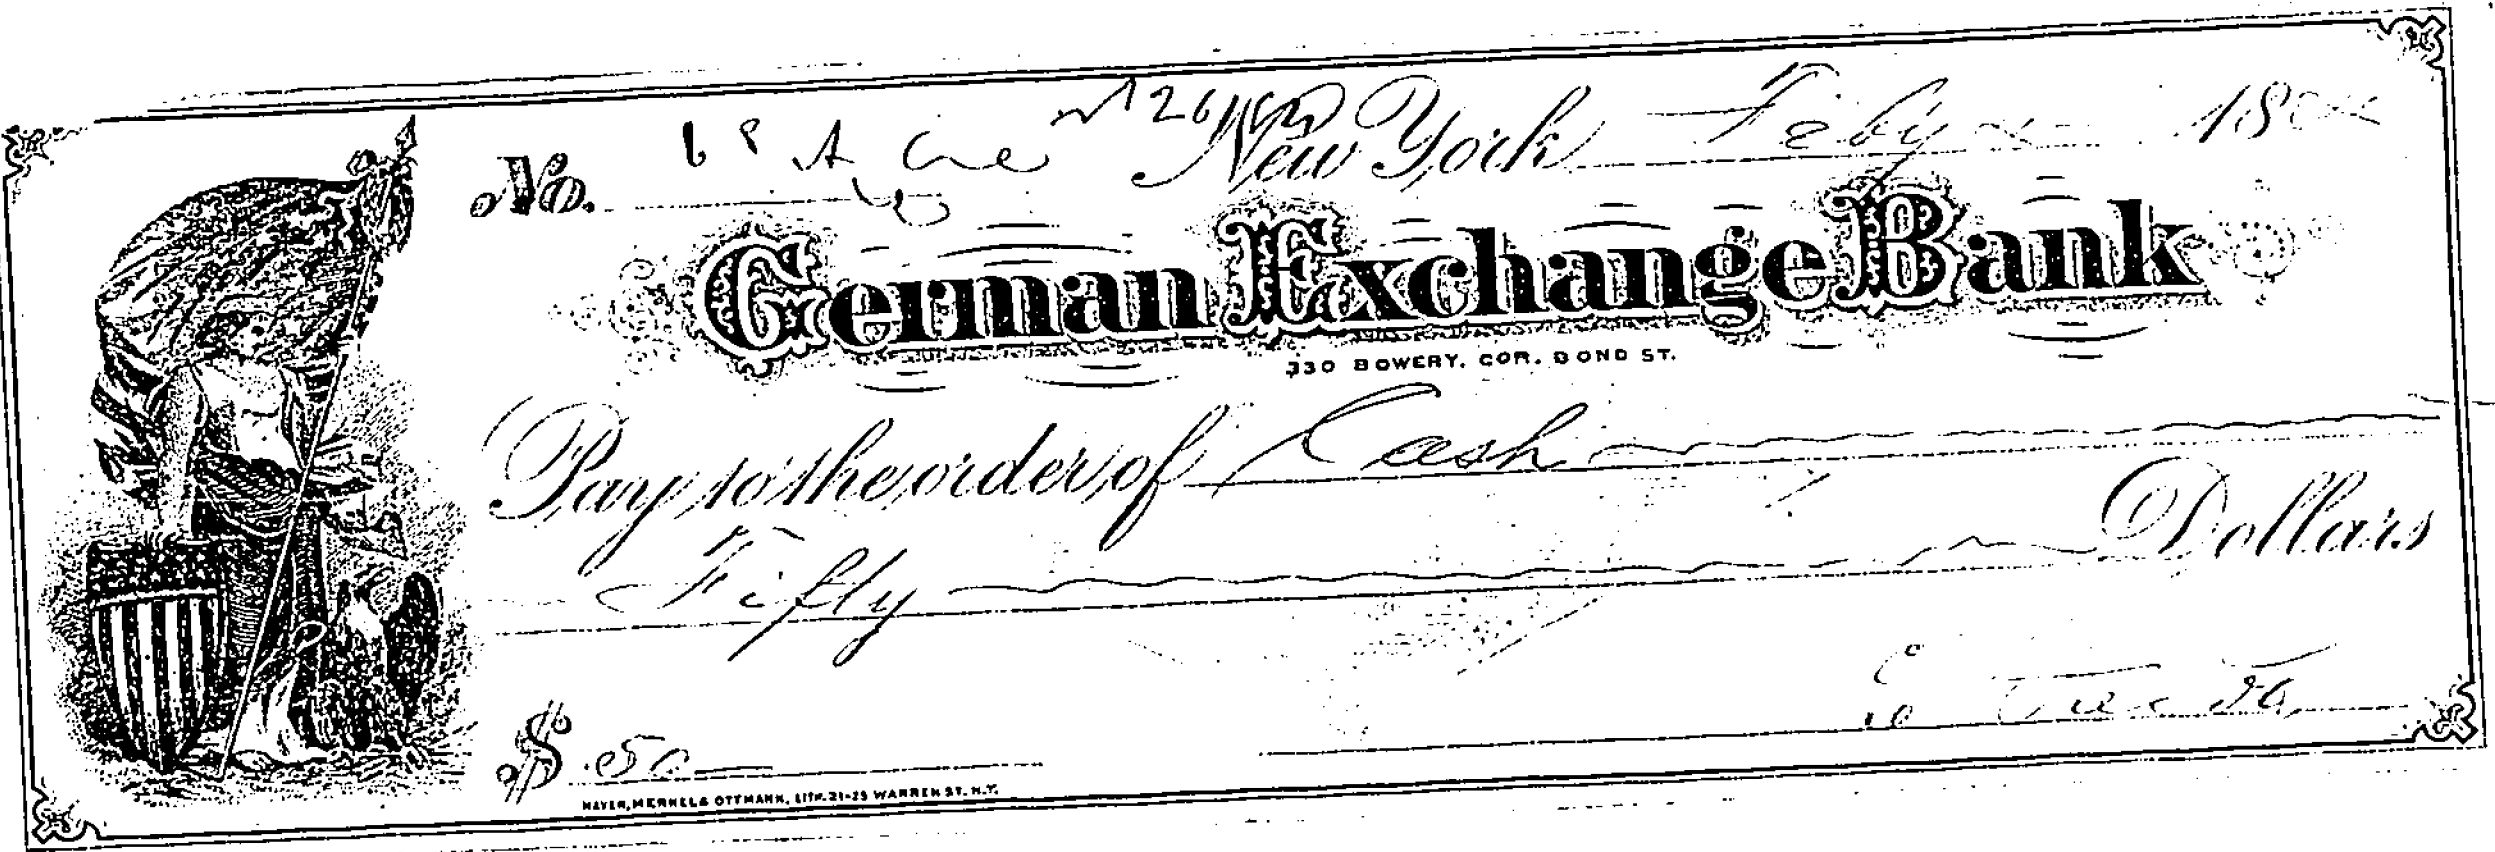 No. New York Feby 18
German Exchange Bank
330 BOWERY, COR. BOND ST.
Pay to the order of Cash
Fifty Dollars
$ 50
MAYER, MERKEL & OTTMANN, LITH. 21-25 WARREN ST. N.Y.